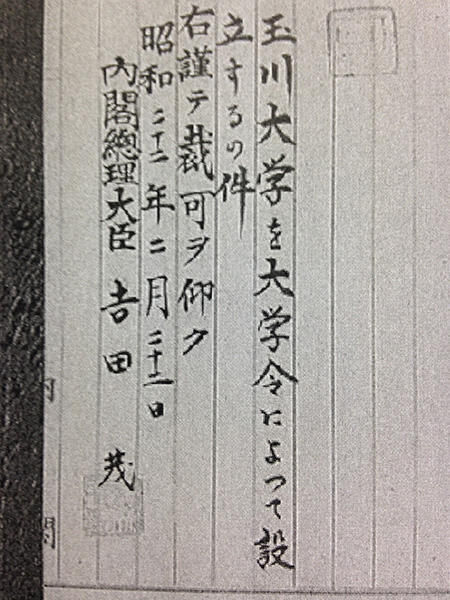 玉川大学を大学令によつて設
立するの件
右謹テ裁可ヲ仰ク
昭和二十二年二月二十二日
内閣總理大臣吉田 茂
内 閣